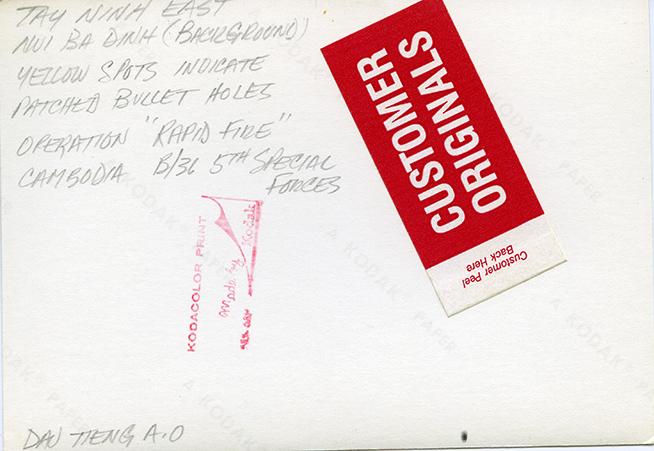 TAY NINH EAST
NUI BA DINH (BACKGROUND)
YELLOW SPOTS INDICATE
PATCHED BULLET HOLES
OPERATION "RAPID FIRE"
CAMBODIA B/36 5TH SPECIAL
FORCES
CUSTOMER
ORIGINALS
Customer Peel
Back Here
KODACOLOR PRINT
made by Kodak
A KODAK PAPER
DAU TIENG A.O